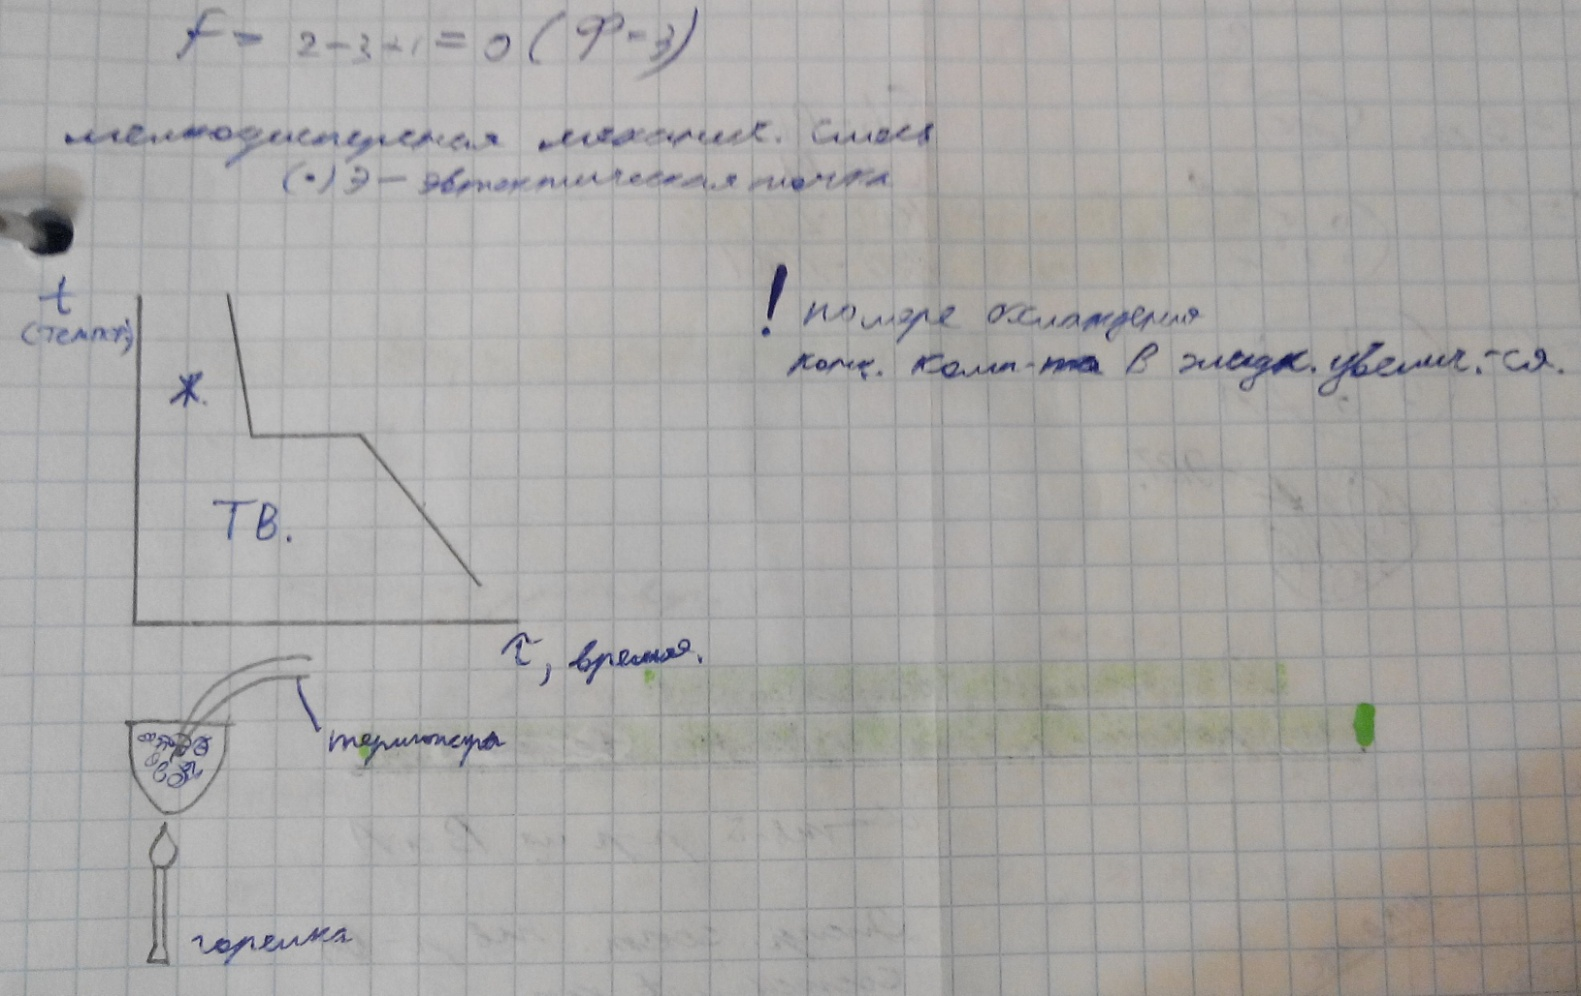 f = 2-3+1 = 0 (Ф=3)
мелкодисперсная механич. смесь
(•) Э — эвтектическая точка
! по мере охлаждения
конц. комп-та в жидк. увелич.-ся.
t
(темп.)
Ж.
ТВ.
τ, время.
термопара
горелка